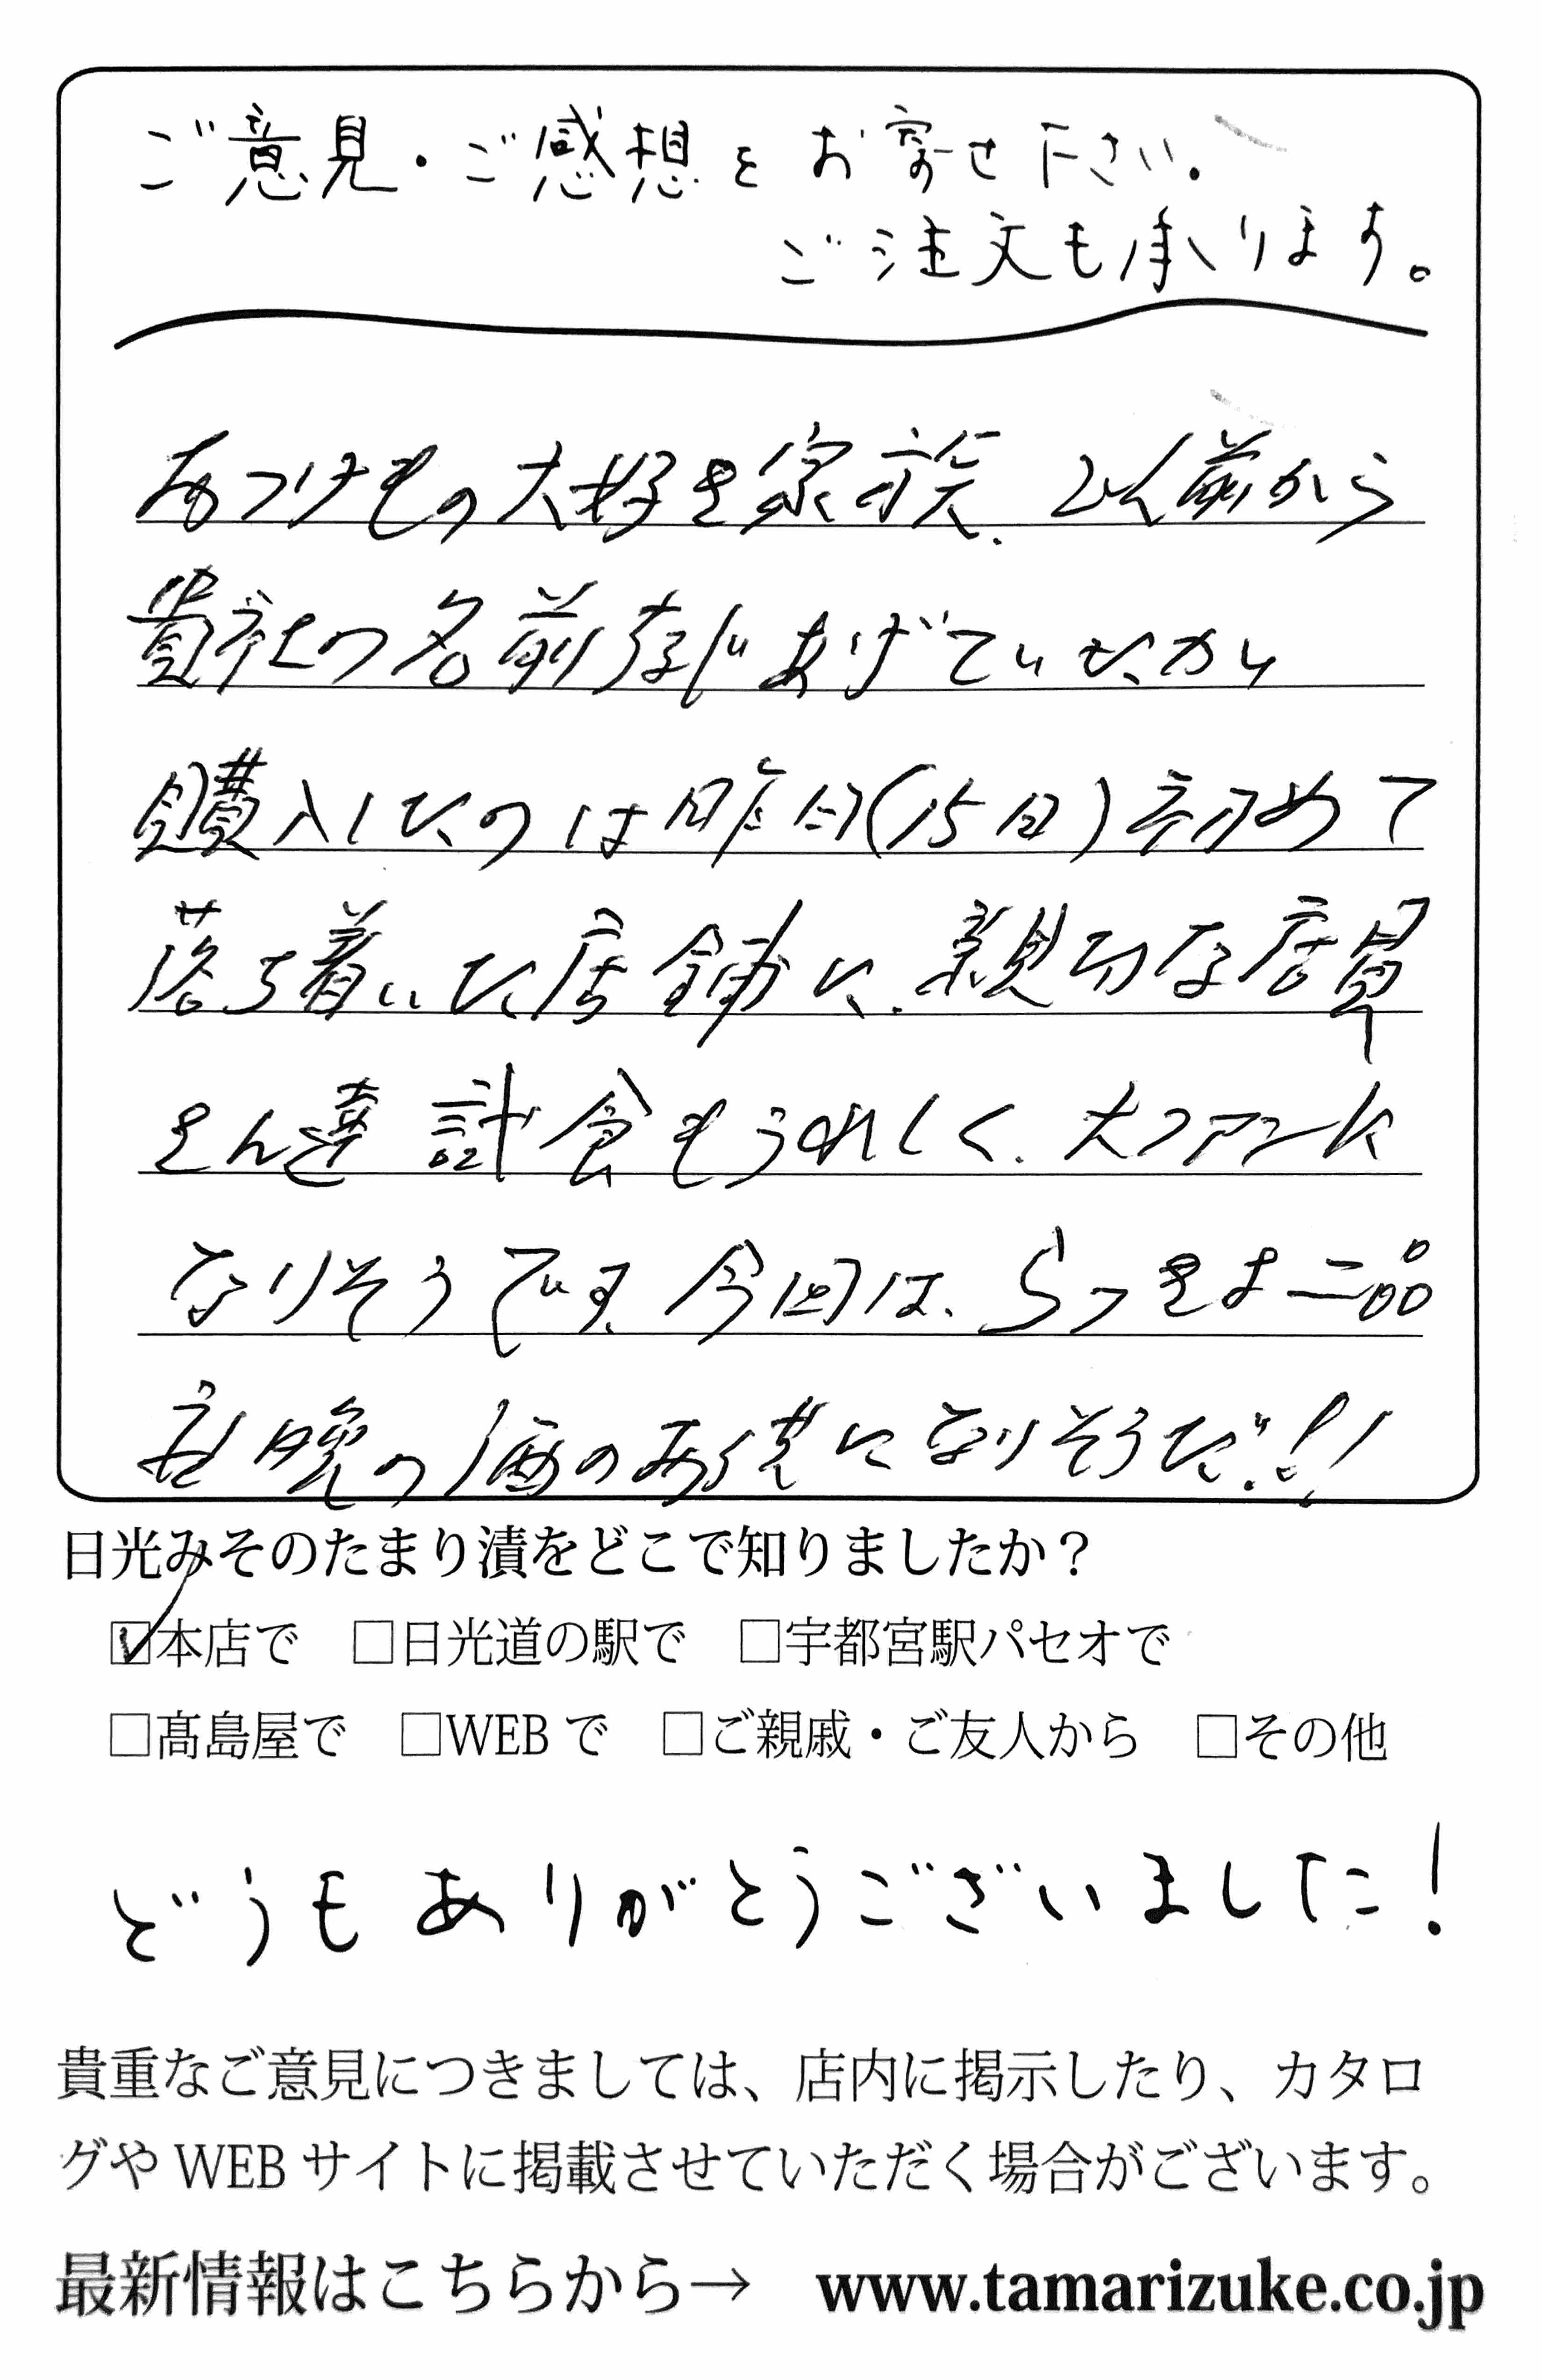 ご意見・ご感想をお寄せ下さい.
ご注文も承ります。
おつけもの大好き家族. 以前から
貴社の名前存じあげていたが
購入したのは昨日(15日)初めて
落ち着いた店舗に.親切な店員
さん達 試食もうれしく.大ファンに
なりそうです. 今回は、らっきょ二品
私 晩の酒のお供になりそうだ!!
日光みそのたまり漬をどこで知りましたか？
☑本店で □日光道の駅で □宇都宮駅パセオで
□髙島屋で □WEBで □ご親戚・ご友人から □その他
どうもありがとうございました!
貴重なご意見につきましては、店内に掲示したり、カタロ
グやWEBサイトに掲載させていただく場合がございます。
最新情報はこちらから→ www.tamarizuke.co.jp